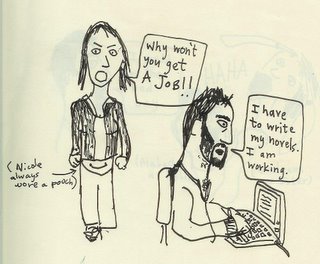 Why won't
you get
A JOB!!
I have
to write
my novels.
I am
working.
(Nicole
always
wore a pouch)